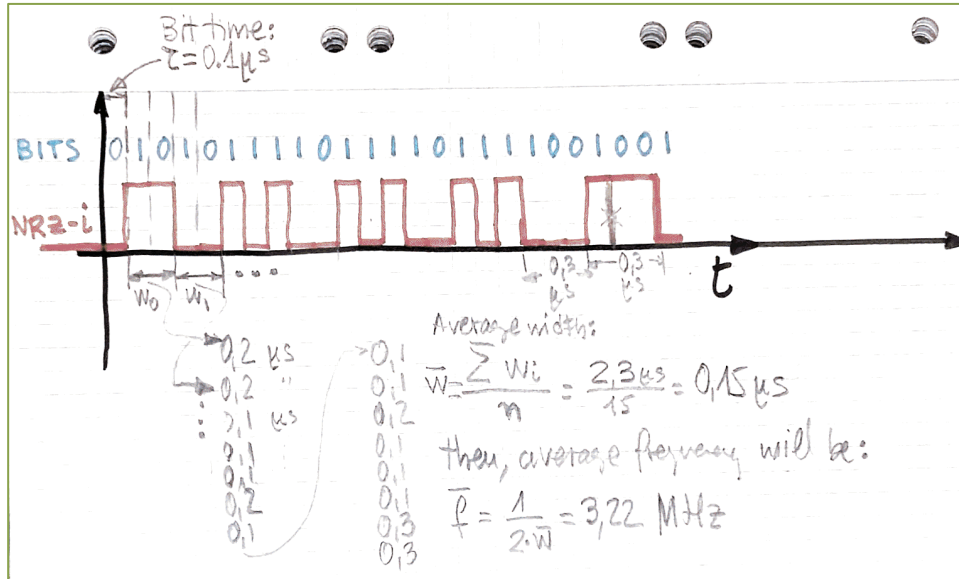 Bit time:
τ=0.1μs
BITS 0 1 0 1 0 1 1 1 1 0 1 1 1 1 0 1 1 1 1 0 0 1 0 0 1
NRZ-i
W0 W1 ...
0,3 μs 0,3 μs
t
0,2 μs
0,2 "
0,1 μs
0,1
0,1
0,2
0,1
0,1
0,1
0,2
0,1
0,1
0,1
0,3
0,3
Average width:
W̄ = ΣWi/n = 2,3μs/15 = 0,15μs
then, average frequency will be:
f̄ = 1/2·W̄ = 3,22 MHz